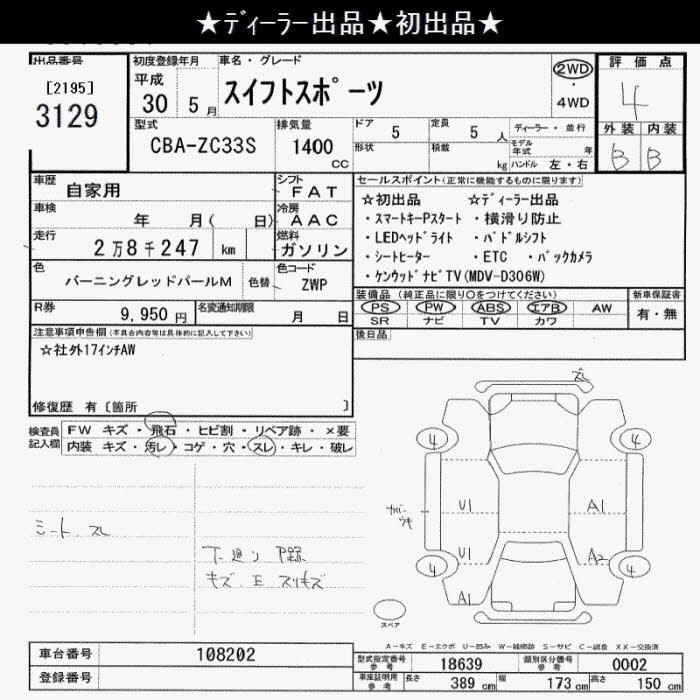 ★ディーラー出品★初出品★
出品番号 初度登録年月 車名・グレード 評価点
[2195] 平成 スイフトスポーツ 2WD 4
3129 30 5月 ・ 4WD
型式 排気量 ドア 5 定員 5人 ディーラー・並行 外装 内装
CBA-ZC33S 1400 CC 形状 積載 kg モデル年式 年 B B
ハンドル 左・右
車歴 自家用 シフト FAT セールスポイント(正常に機能するものに限ります)
車検 年 月( 日) 冷房 AAC ☆初出品 ☆ディーラー出品
走行 2万8千247 km 燃料 ガソリン ・スマートキーPスタート ・横滑り防止
・LEDヘッドライト ・パドルシフト
・シートヒーター ・ETC ・バックカメラ
色 バーニングレッドパールM 色替 色コード ZWP ・ケンウッドナビTV(MDV-D306W)
R券 9,950円 名変通知期限 月 日 装備品 (純正品に限り○をつけてください) 新車保証書
PS PW ABS エアB AW 有・無
SR ナビ TV カワ
注意事項申告欄(不具合内容等は具体的に記入して下さい) 後日品
☆社外17インチAW
修復歴 有〔箇所 〕
検査員記入欄 FW キズ・飛石・ヒビ割・リペア跡・×要
内装 キズ・汚レ・コゲ・穴・スレ・キレ・破レ
4 4
U1 A1
シート スレ
下廻り
キズ スリキズ
U1 A2
4 4
A1
スペア
A-キズ E-エクボ U-凹み W-補修跡 S-サビ C-腐食 XX-交換済
車台番号 108202 型式指定番号参考 18639 類別区分番号参考 0002
登録番号 車庫証明用参考 長さ 389cm 幅 173cm 高さ 150cm